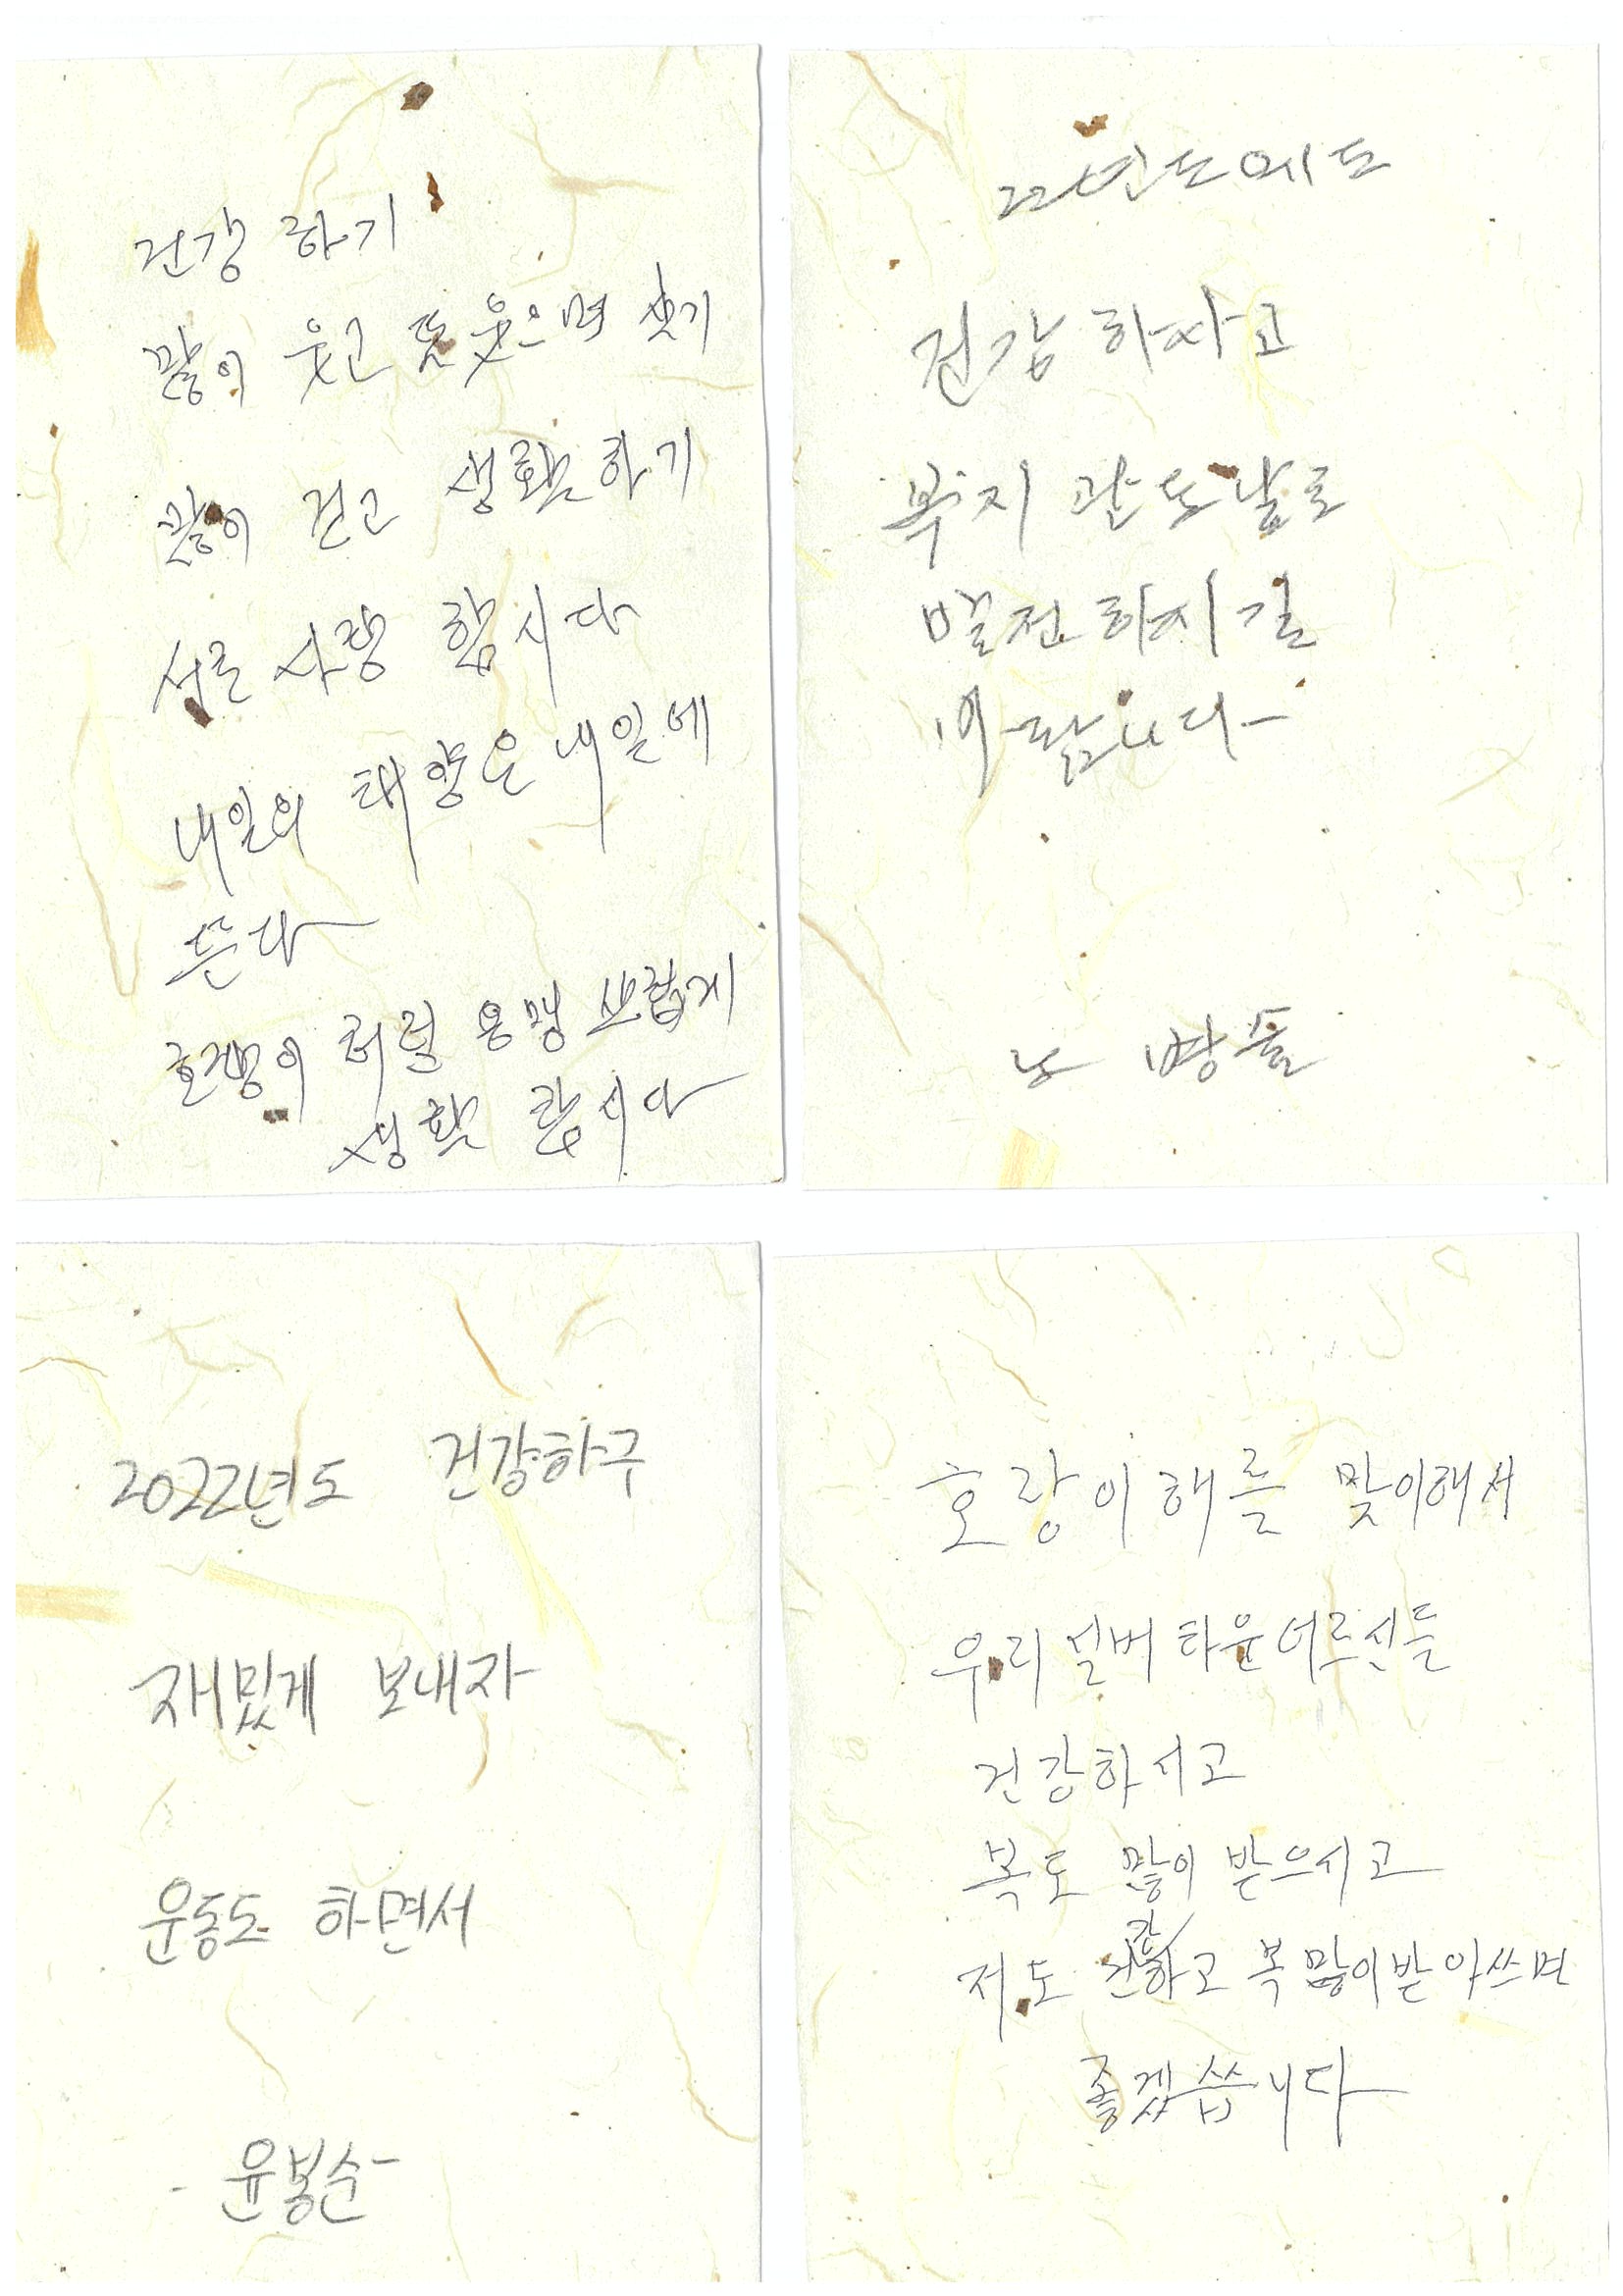 건강 하기
많이 웃고 또 웃으며 살기
많이 걷고 생활하기
서로 사랑 합시다
내일의 태양은 내일에
뜬다
호랭이 처럼 용맹 스럽게
생활 합시다
22년도에도
건강 하자고
복지 관도 날로
발전 하시길
바랍니다
2022년도 건강하구
재밌게 보내자
운동도 하면서
- 윤봉순 -
호랑이해를 맞이해서
우리 실버타운 어르신들
건강하시고
복도 많이 받으시고
저도 건강하고 복 많이받아쓰면
좋겠씁니다